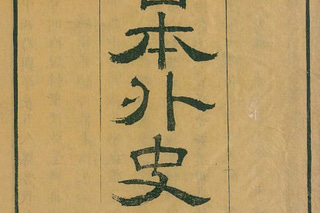 日本外史